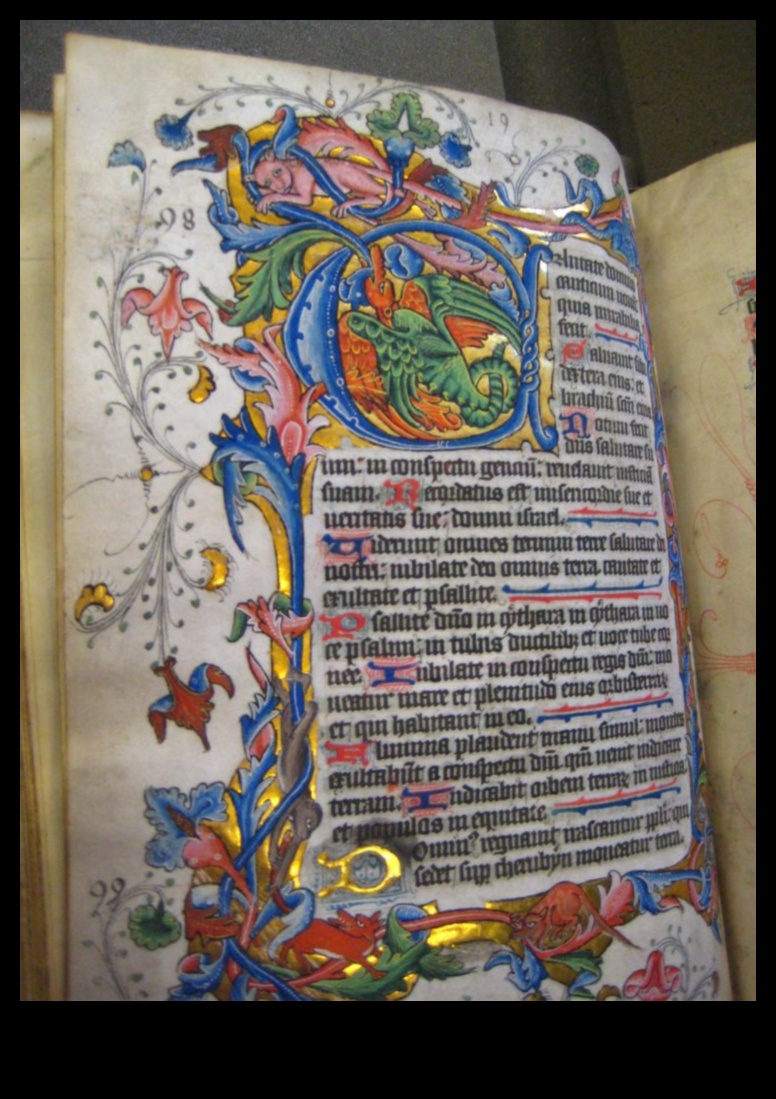 19
98
C antate domino
canticum nouu
quia mirabilia
fecit.
Saluauit sibi
dextera eius: et
brachiũ scm eius
Notum fecit
dns salutare su
um: in conspectu genciũ: reuelauit iusticiã
suam. Recordatus est misericordie sue et
ueritatis sue: domui israel.
Uiderunt omnes termini terre salutare dei
nostri: iubilate deo omnis terra cantate et
exultate et psallite.
Psallite dño in cythara in cythara et uo
ce psalmi: in tubis ductilib; et uoce tube cor
nee. Iubilate in conspectu regis dñi: mo
ueatur mare et plenitudo eius orbisterraꝝ
et qui habitant in eo.
Flumina plaudent manu simul: montes
exultabũt a conspectu dñi: qm̃ uenit iudicare
terram. Iudicabit orbem terraꝝ in iusticia:
et populos in equitate.
99
Dominꝰ regnauit irascantur ppli: qui
sedet sup cherubyn moueatur terra.